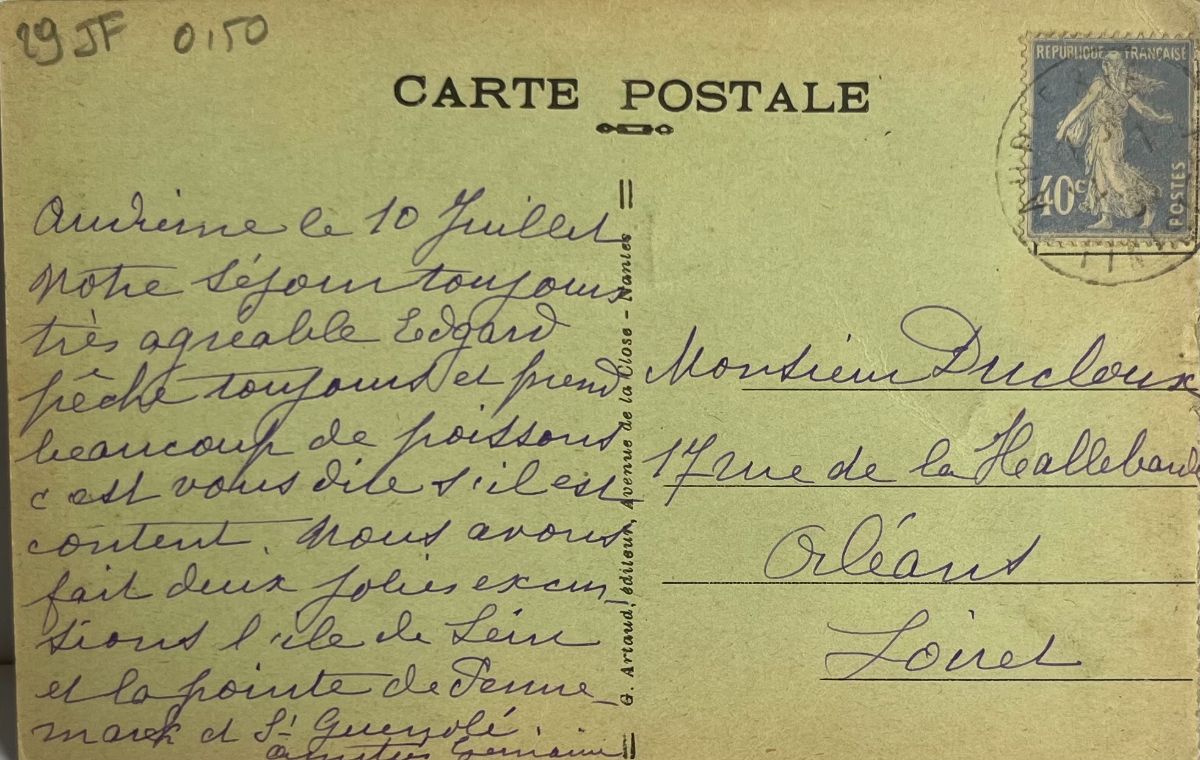 29 JF 0,50
CARTE POSTALE
REPUBLIQUE FRANÇAISE
40c
POSTES
Audierne le 10 Juillet
Notre séjour toujours
très agreable Edgard
pêche toujours et prend
beaucoup de poissons
c'est vous dire s'il est
content. Nous avons
fait deux jolies excur-
sions l'ile de Sein
et la pointe de Penne-
marck et St Guenolé.
amitiés Germaine
G. Artaud, éditeur, Avenue de la Close - Nantes
Monsieur Ducloux
17 rue de la Hallebarde
Orléans
Loiret